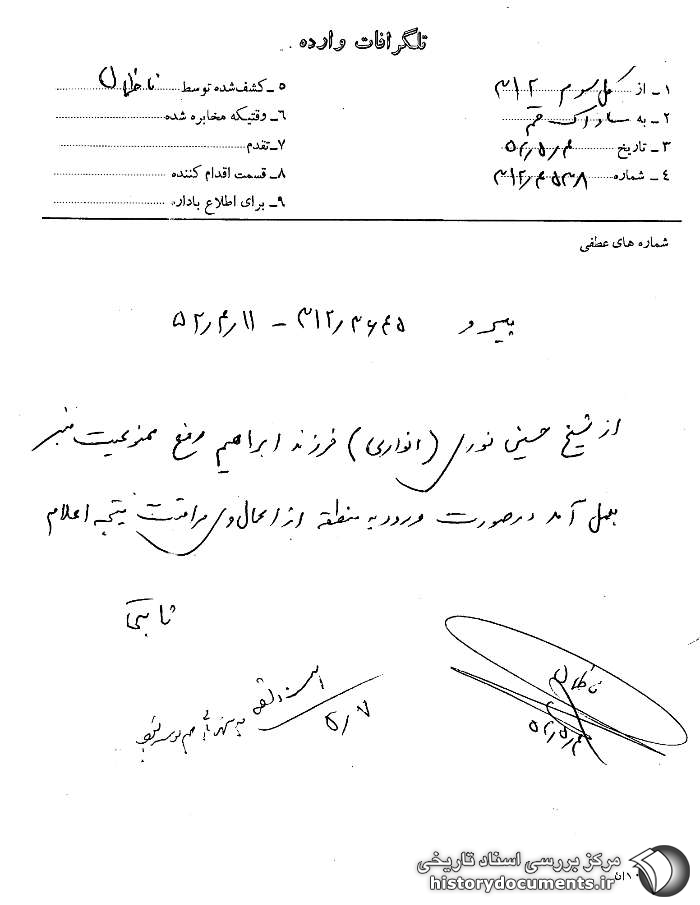 تلگرافات وارده
۱ـ از کل سوم ۳۱۲
۲ـ به ساواک قم
۳ـ تاریخ ۵۲/۵/۴
۴ـ شماره ۳۱۲/۴۵۳۸
۵ـ کشف‌شده توسط ناظمان
۶ـ وقتیکه مخابره شده
۷ـ تقدم
۸ـ قسمت اقدام کننده
۹ـ برای اطلاع بادار،
شماره های عطفی
پیرو ۳۱۲/۳۶۴۵ – ۵۲/۴/۱۱
از شیخ حسین نوری (انواری) فرزند ابراهیم رفع ممنوعیت منبر
بعمل آمد درصورت ورود به منطقه از اعمال وی مراقبت نتیجه اعلام
ثابتی
۵۲/۵/۴
۵/۷
مرکز بررسی اسناد تاریخی
historydocuments.ir